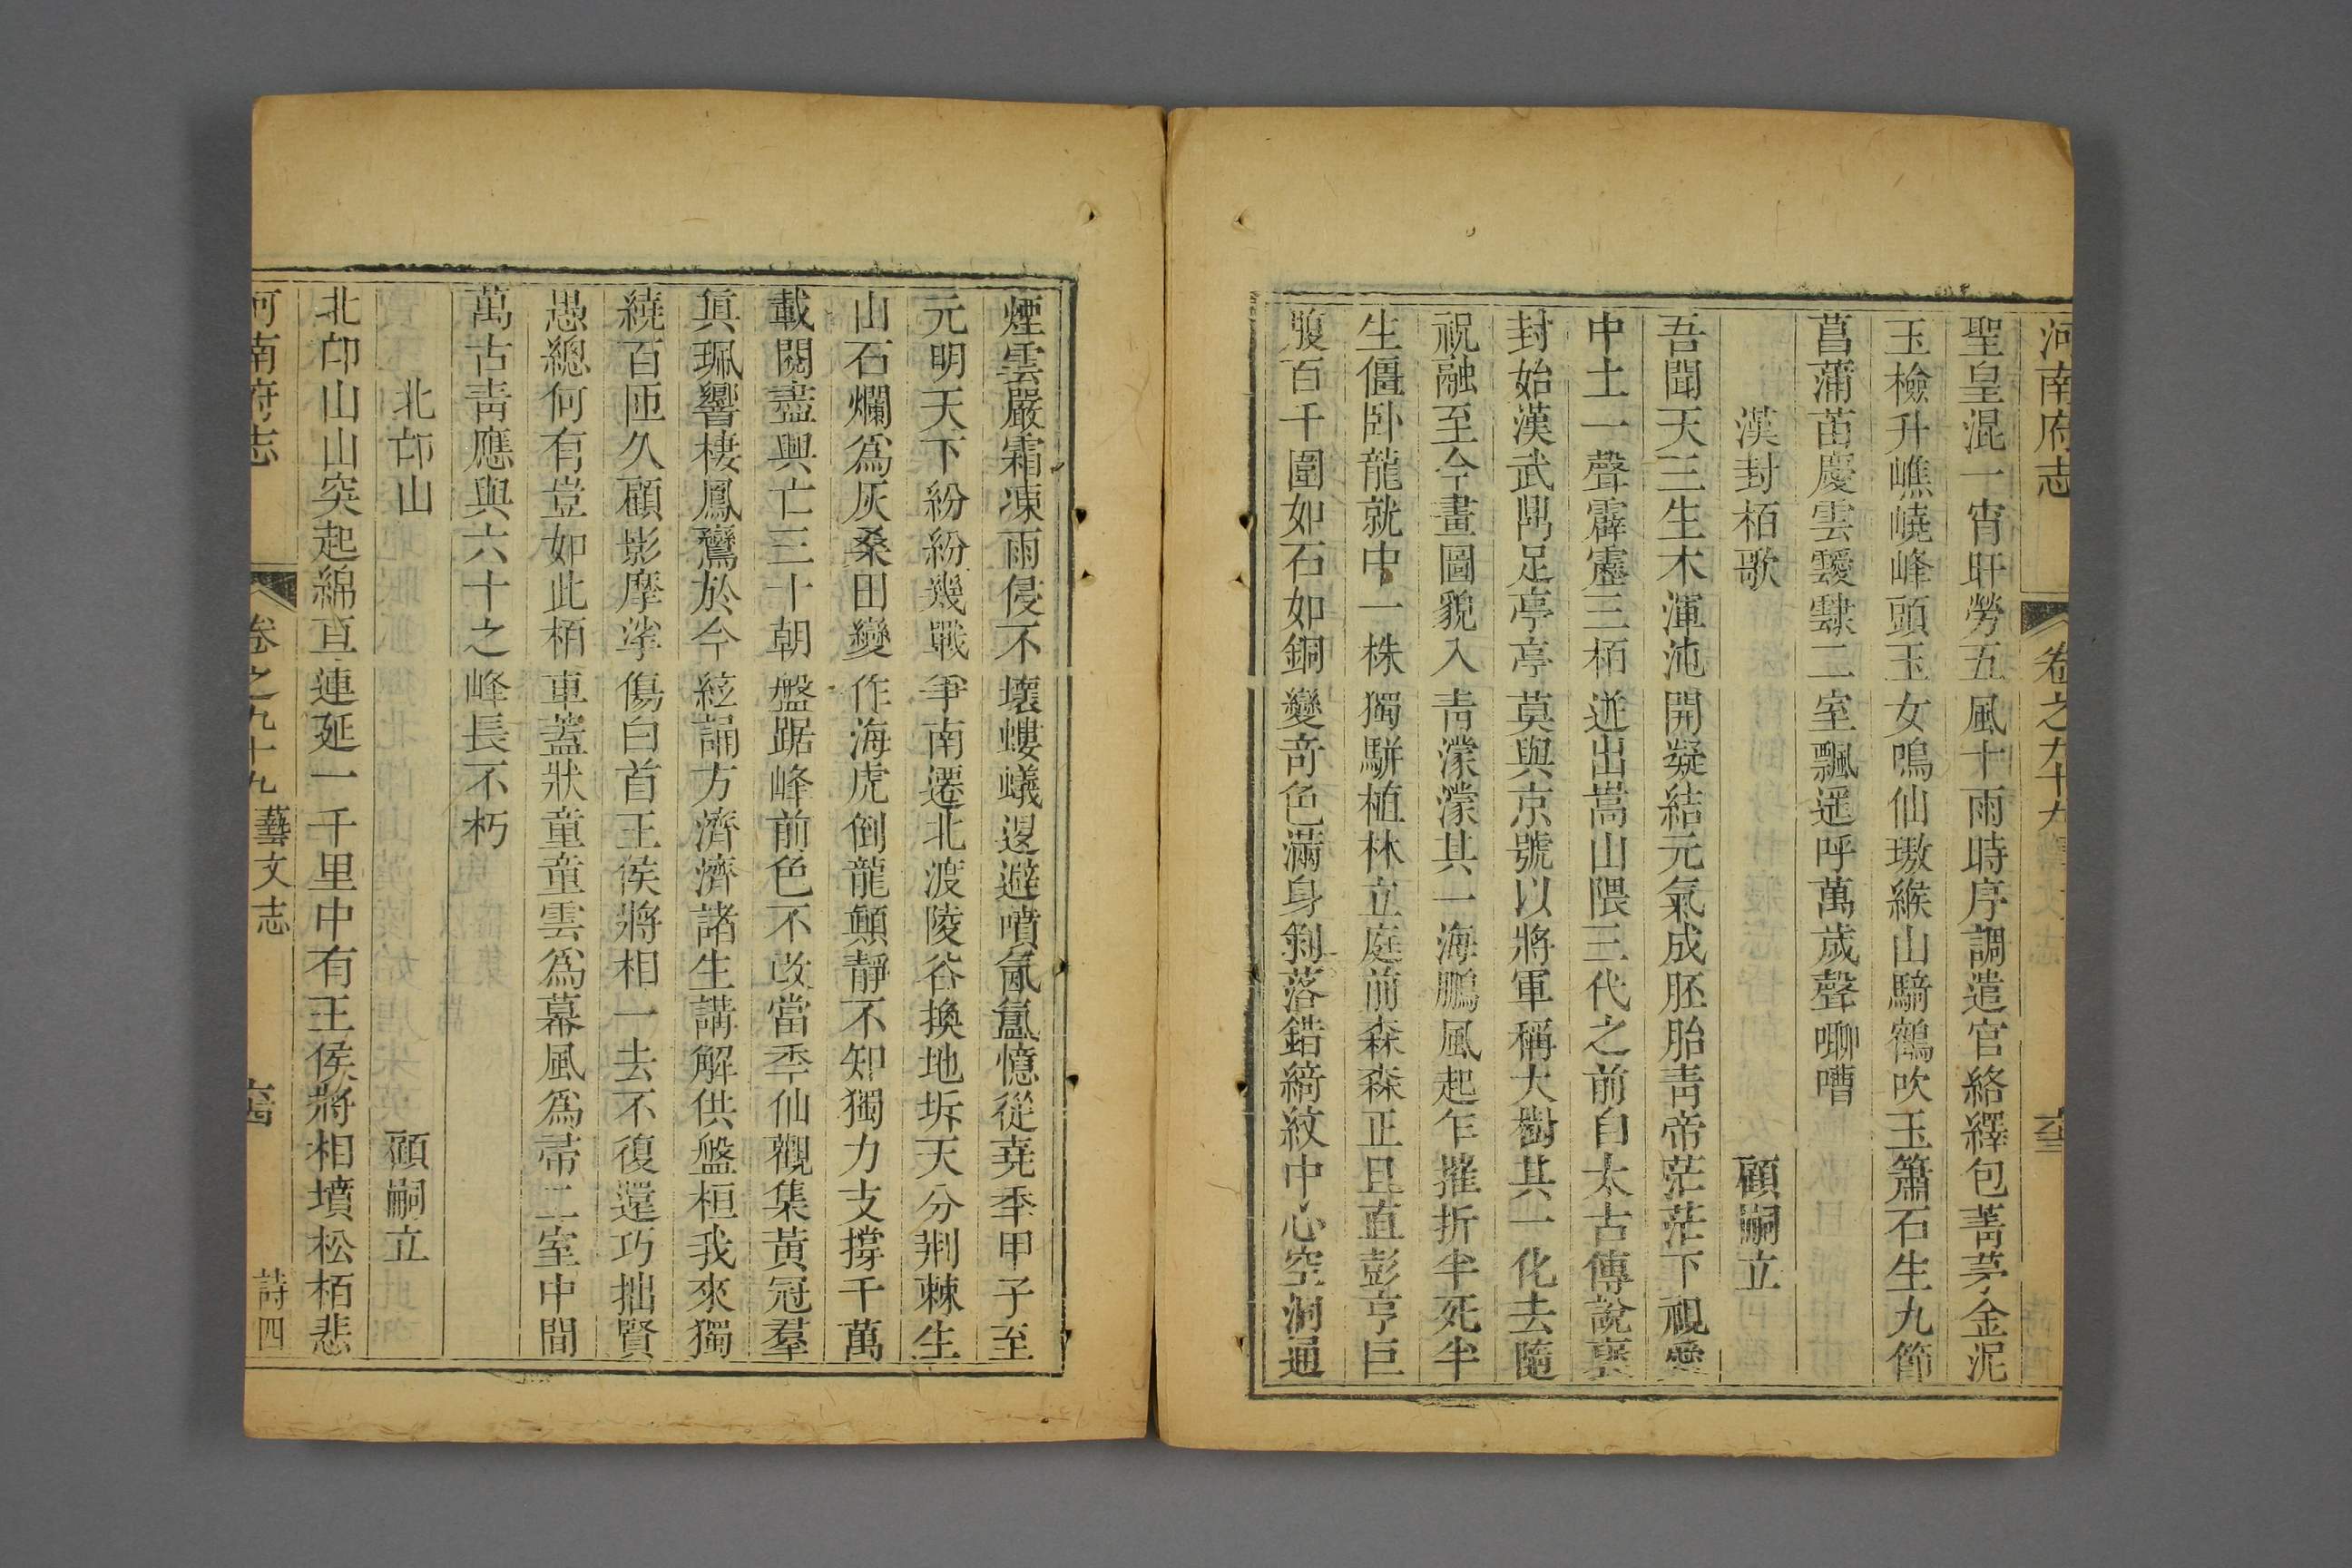 河南府志
卷之九十九
聖皇混一宵旰勞五風十雨時序調遣官絡繹包菁茅金泥
玉檢升嶕嶢峰頭玉女鳴仙璈緱山騎鶴吹玉簫石生九節
菖蒲苗慶雲靉靆二室飄遥呼萬歲聲嘲嘈
漢封栢歌
顧嗣立
吾聞天三生木渾沌開凝結元氣成胚胎靑帝茫茫下視
中土一聲霹靂三栢迸出嵩山隈三代之前自太古傳說
封始漢武鼎足亭亭莫與京號以將軍稱大樹其一化去隨
祝融至今畫圖貌入靑濛濛其一海鵬風起乍摧折半死半
生僵卧龍就中一株獨駢植林立庭前森森正且直彭亨巨
腹百千圍如石如銅變奇色滿身剝落錯綺紋中心空洞通
煙雲嚴霜凍雨侵不壞螻蟻遠避噴氤氳憶從堯季甲子至
元明天下紛紛幾戰爭南遷北渡陵谷換地坼天分荆棘生
山石爛爲灰桑田變作海虎倒龍顛靜不知獨力支撐千萬
載閱盡興亡三十朝盤踞峰前色不改當季仙觀集黃冠羣
眞珮響棲鳳鸞於今絃誦方濟濟諸生講解供盤桓我來獨
繞百匝久顧影摩挲傷白首王侯將相一去不復還巧拙賢
愚總何有豈如此栢車蓋狀童童雲爲幕風爲帚二室中間
萬古靑應與六十之峰長不朽
北邙山
顧嗣立
北邙山山突起綿亘連延一千里中有王侯將相墳松栢悲
河南府志
卷之九十九
藝文志
詩四